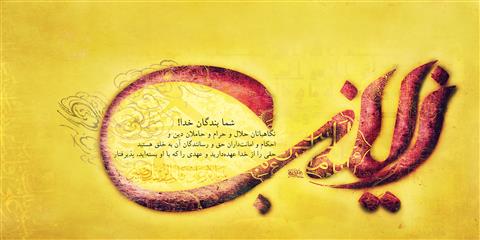 شما بندگان خدا!
نگاهبانان حلال و حرام و حاملان دین و
احکام و امانت‌داران حق و رسانندگان آن به خلق هستید
حقی را از خدا عهده‌دارید و عهدی را که با او بسته‌اید، پذیرفتار